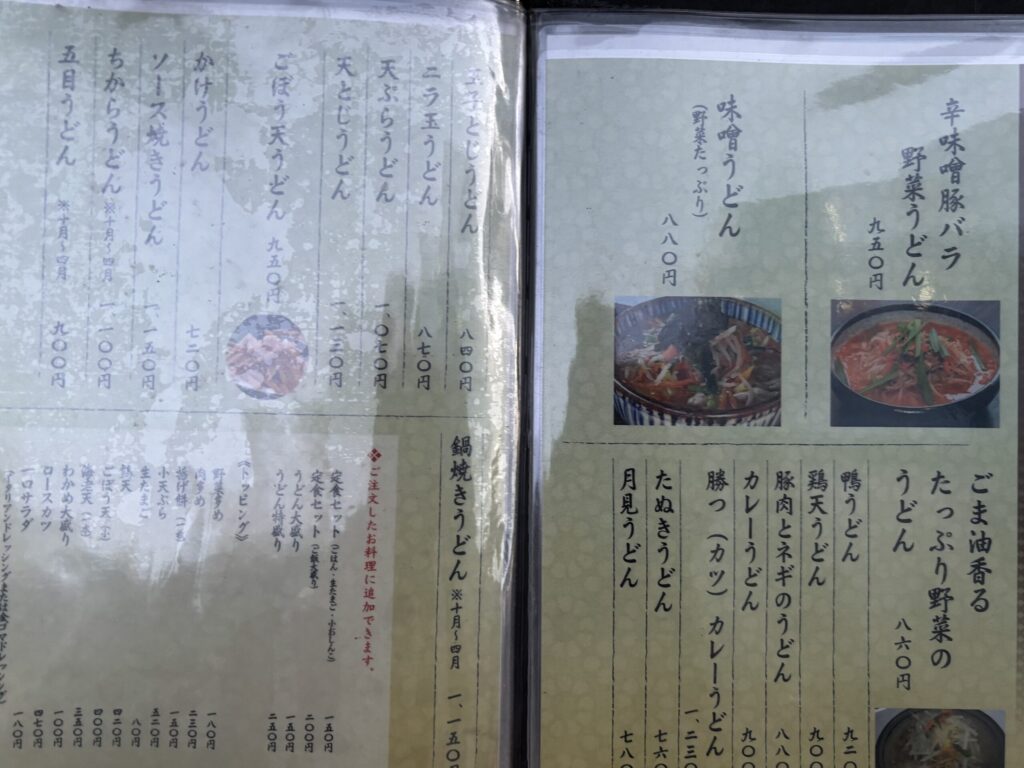 辛味噌豚バラ
野菜うどん
九五〇円
味噌うどん
(野菜たっぷり)
八八〇円
ごま油香る
たっぷり野菜の
うどん
八六〇円
鴨うどん
九二〇
鶏天うどん
九〇〇
豚肉とネギのうどん
八八〇
カレーうどん
九〇〇
勝つ(カツ)カレーうどん
一、二三〇
たぬきうどん
七六〇
月見うどん
七八〇
玉子とじうどん
八四〇円
ニラ玉うどん
八七〇円
天ぷらうどん
一、〇七〇円
天とじうどん
一、一二〇円
ごぼう天うどん
九五〇円
かけうどん
七二〇円
ソース焼きうどん
一、一五〇円
ちからうどん ※十月~四月
一、一〇〇円
五目うどん ※十月~四月
九〇〇円
鍋焼きうどん ※十月~四月 一、一五〇円
❖ご注文したお料理に追加できます。
定食セット(ごはん・生たまご・小おしんこ)
一五〇円
定食セット(ご飯大盛り)
二〇〇円
うどん大盛り
一五〇円
うどん特盛り
二五〇円
《トッピング》
野菜増め
一八〇円
肉増め
二三〇円
揚げ餅
一五〇円
小天ぷら
五二〇円
生たまご
八〇円
鶏天
四二〇円
ごぼう天(小)
四〇〇円
三五〇円
わかめ大盛り
一〇〇円
ロースカツ
四七〇円
一口サラダ
一八〇円